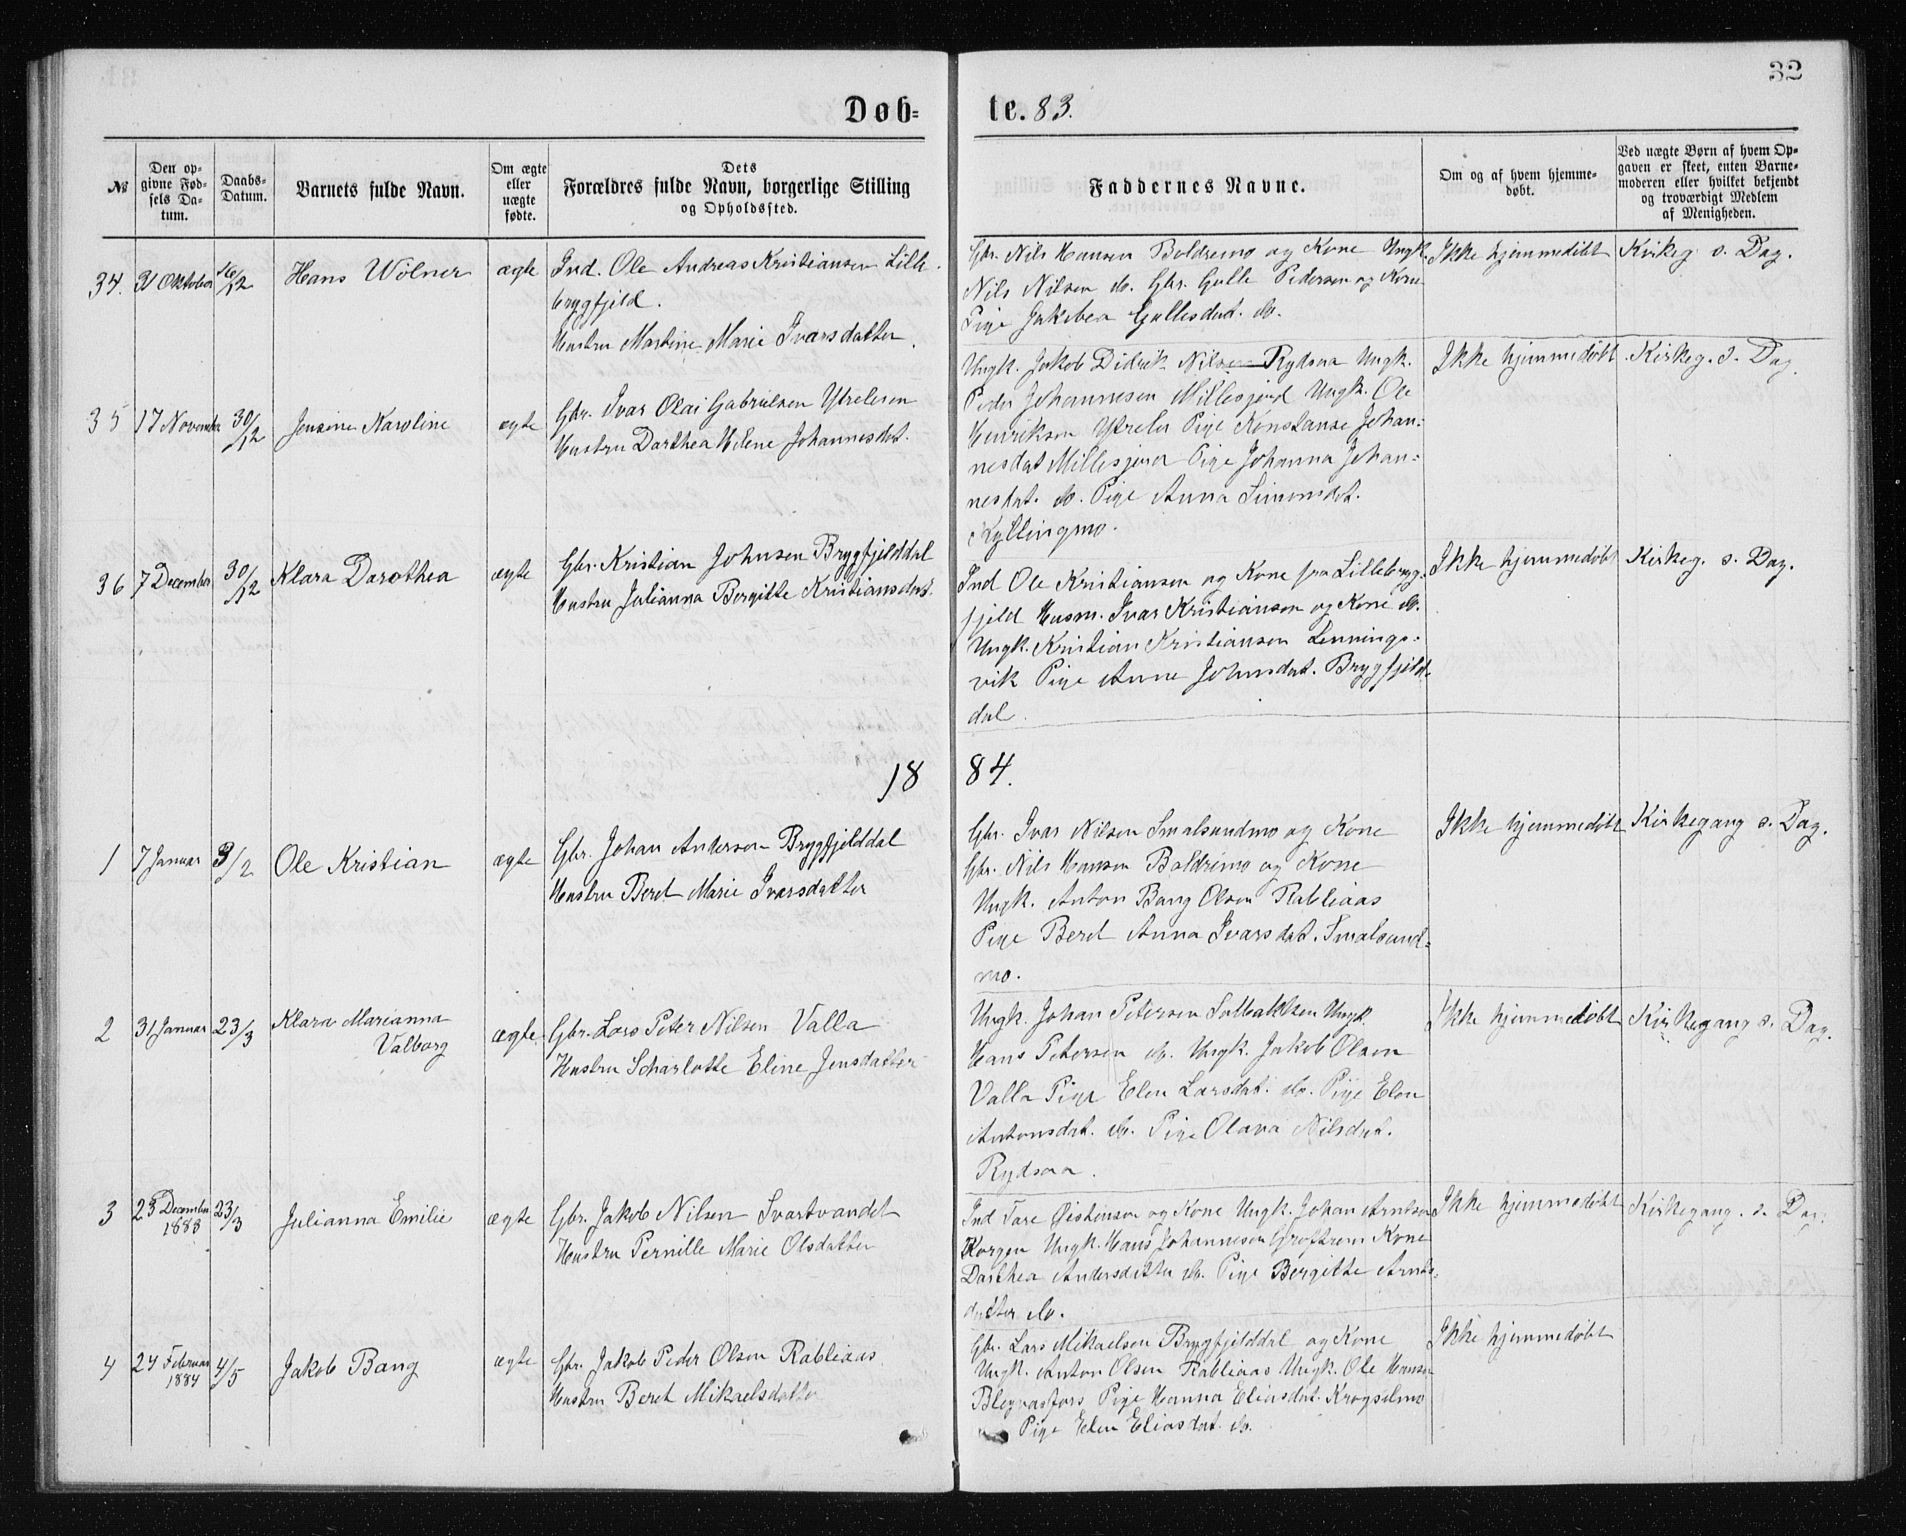 32
Døb- te. 83.
№
Den opgivne Fødsels Datum.
Daabs-Datum.
Barnets fulde Navn.
Om ægte eller uægte fødte.
Dets Forældres fulde Navn, borgerlige Stilling og Opholdssted.
Faddernes Navne.
Om og af hvem hjemmedøbt.
Ved uægte Børn af hvem Opgaven er skeet, enten Barnemoderen eller hvilket bekjendt og troværdigt Medlem af Menigheden.
34. 31 Oktober 16/12 Hans Wölner ægte
Ind. Ole Andreas Kristiansen Lille
brygfjeld.
Hustru Martine Marie Ivarsdatter.
Gbr. Nils Hansen Boldremo og Kone Ungk.
Nils Nilsen do. Gbr. Gulle Pedersen og Kone
Pige Jakobea Gullesdat. do.
Ikke hjemmedöbt
Kirkeg. s. Dag.
35 17 November 30/12 Jensine Karoline ægte
Gbr. Ivar Olai Gabrielsen Ytreleren
Hustru Darthea Helene Johannesdat.
Ungk. Jakob Didrik Nilsen Rydsaa Ungk.
Peder Johannesen Millesjord Ungk. Ole
Henriksen Ytreler Pige Konstanse Johan-
nesdat Millesjord Pige Johanna Johan-
nesdat. do. Pige Anna Simonsdat.
Kyllingmo.
Ikke hjemmedöbt
Kirkeg. s. Dag.
36 7 December 30/12 Klara Dorothea ægte
Gbr. Kristian Johnsen Brygfjelddal
Hustru Julianna Bergitte Kristiansdat.
Ind Ole Kristiansen og Kone fra Lillebryg-
fjeld Husm. Ivar Kristiansen og Kone do.
Ungk. Kristian Kristiansen Lennings-
vik Pige Anne Johnsdat. Brygfjeld-
dal.
Ikke hjemmedöbt
Kirkeg. s. Dag.
18 84.
1 7 Januar 3/2 Ole Kristian ægte
Gbr. Johan Anderson Brygfjelddal
Hustru Beret Marie Ivarsdatter
Gbr. Ivar Nilsen Smalsundmo og Kone
Gbr. Nils Hansen Boldremo og Kone
Ungk. Anton Bang Olsen Rabliaas
Pige Beret Anna Ivarsdat. Smalsund-
mo.
Ikke hjemmedöbt
Kirkegang s. Dag.
2 31 Januar 23/3 Klara Marianna
Valborg ægte
Gbr. Lars Peter Nilsen Valla
Hustru Scharlotte Eline Jensdatter
Ungk. Johan Petersen Solbakken Ungk.
Hans Petersen do. Ungk. Jakob Olsen
Valla Pige Elen Larsdat. do. Pige Elen
Antonsdat. do. Pige Olava Nilsdat.
Rydsaa.
Ikke hjemmedöbt
Kirkegang s. Dag.
3 23 December 1883 23/3 Julianna Emilie ægte
Gbr. Jakob Nilsen Svartvandet
Hustru Pernille Marie Olsdatter
Ind Tare Øistensen og Kone Ungk. Johan Arntsen
Korgen Ungk. Hans Johannesen Kone
Darthea Andersdatter do. Pige Bergitte Arnts-
datter do.
Ikke hjemmedöbt
Kirkegang. s. Dag.
4 24 Februar 1884 4/5 Jakob Bang ægte
Gbr. Jakob Peder Olsen Rabliaas
Hustru Beret Mikaelsdatter
Gbr. Lars Mikaelsen Brygfjelddal og Kone
Ungk. Anton Olsen Rabliaas Ungk. Ole Hansen
Blegvasfors Pige Hanna Eliasdat. Krogselmo
Pige Elen Eliasdat. do.
Ikke hjemmedöbt